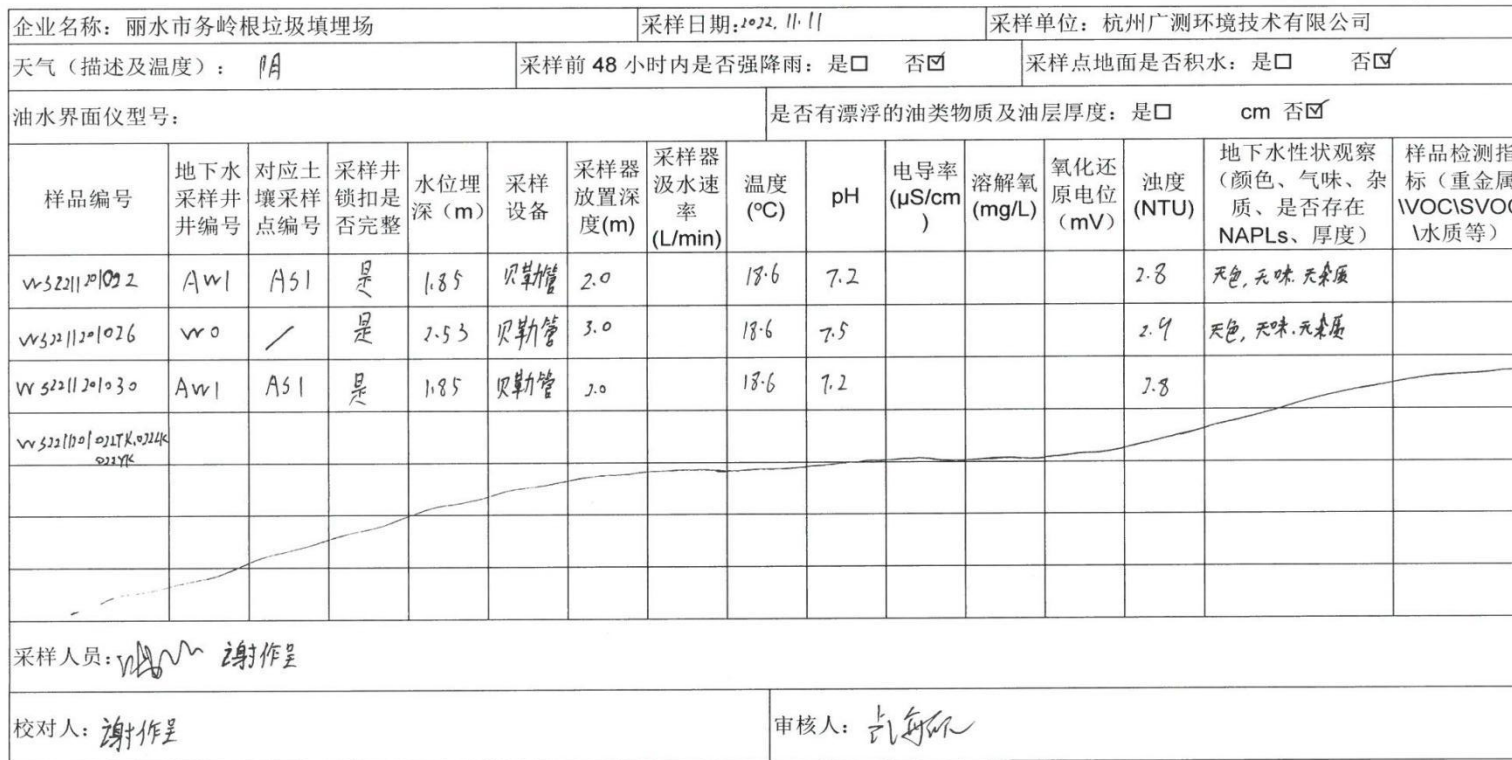 企业名称：丽水市务岭根垃圾填埋场 采样日期:2022.11.11 采样单位：杭州广测环境技术有限公司
天气（描述及温度）： 阴 采样前 48 小时内是否强降雨：是□ 否☑ 采样点地面是否积水：是□ 否☑
油水界面仪型号： 是否有漂浮的油类物质及油层厚度：是□ cm 否☑
样品编号 地下水采样井井编号 对应土壤采样点编号 采样井锁扣是否完整 水位埋深（m） 采样设备 采样器放置深度(m) 采样器汲水速率(L/min) 温度(℃) pH 电导率(μS/cm) 溶解氧(mg/L) 氧化还原电位（mV） 浊度(NTU) 地下水性状观察（颜色、气味、杂质、是否存在NAPLs、厚度） 样品检测指标（重金属\VOC\SVOC\水质等）
AW1 AS1 是 1.85 贝勒管 2.0 18.6 7.2 2.8 无色,无味.无杂质
WS221201026 W0 / 是 2.53 贝勒管 3.0 18.6 7.5 2.9 无色,无味.无杂质
AW1 AS1 是 1.85 贝勒管 2.0 18.6 7.2 2.8
采样人员: 谢作呈
校对人：谢作呈 审核人：